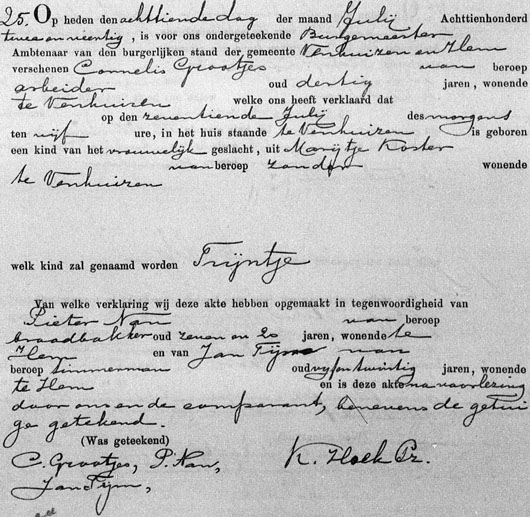 25. Op heden den achttiende dag der maand Julij Achttienhonderd
twee en veertig, is voor ons ondergeteekende Burgemeester
Ambtenaar van den burgerlijken stand der gemeente Venhuizen en Hem
verschenen Cornelis Grootjes van beroep
arbeider oud dertig jaren, wonende
te Venhuizen welke ons heeft verklaard dat
op den zeventiende Julij des morgens
ten vijf ure, in het huis staande te Venhuizen is geboren
een kind van het vrouwelijk geslacht, uit Marijtje Koster
van beroep zonder wonende
te Venhuizen
welk kind zal genaamd worden Trijntje
Van welke verklaring wij deze akte hebben opgemaakt in tegenwoordigheid van
Pieter Nan van beroep
broodbakker oud zeven en 20 jaren, wonende te
Hem en van Jan Tijm van
beroep timmerman oud vyf en twintig jaren, wonende
te Hem en is deze akte na voorlezing
door ons en de comparant, benevens de getui
ge getekend.
(Was geteekend)
C. Grootjes, P. Nan, K. Hoek Pz.
Jan Tijm,